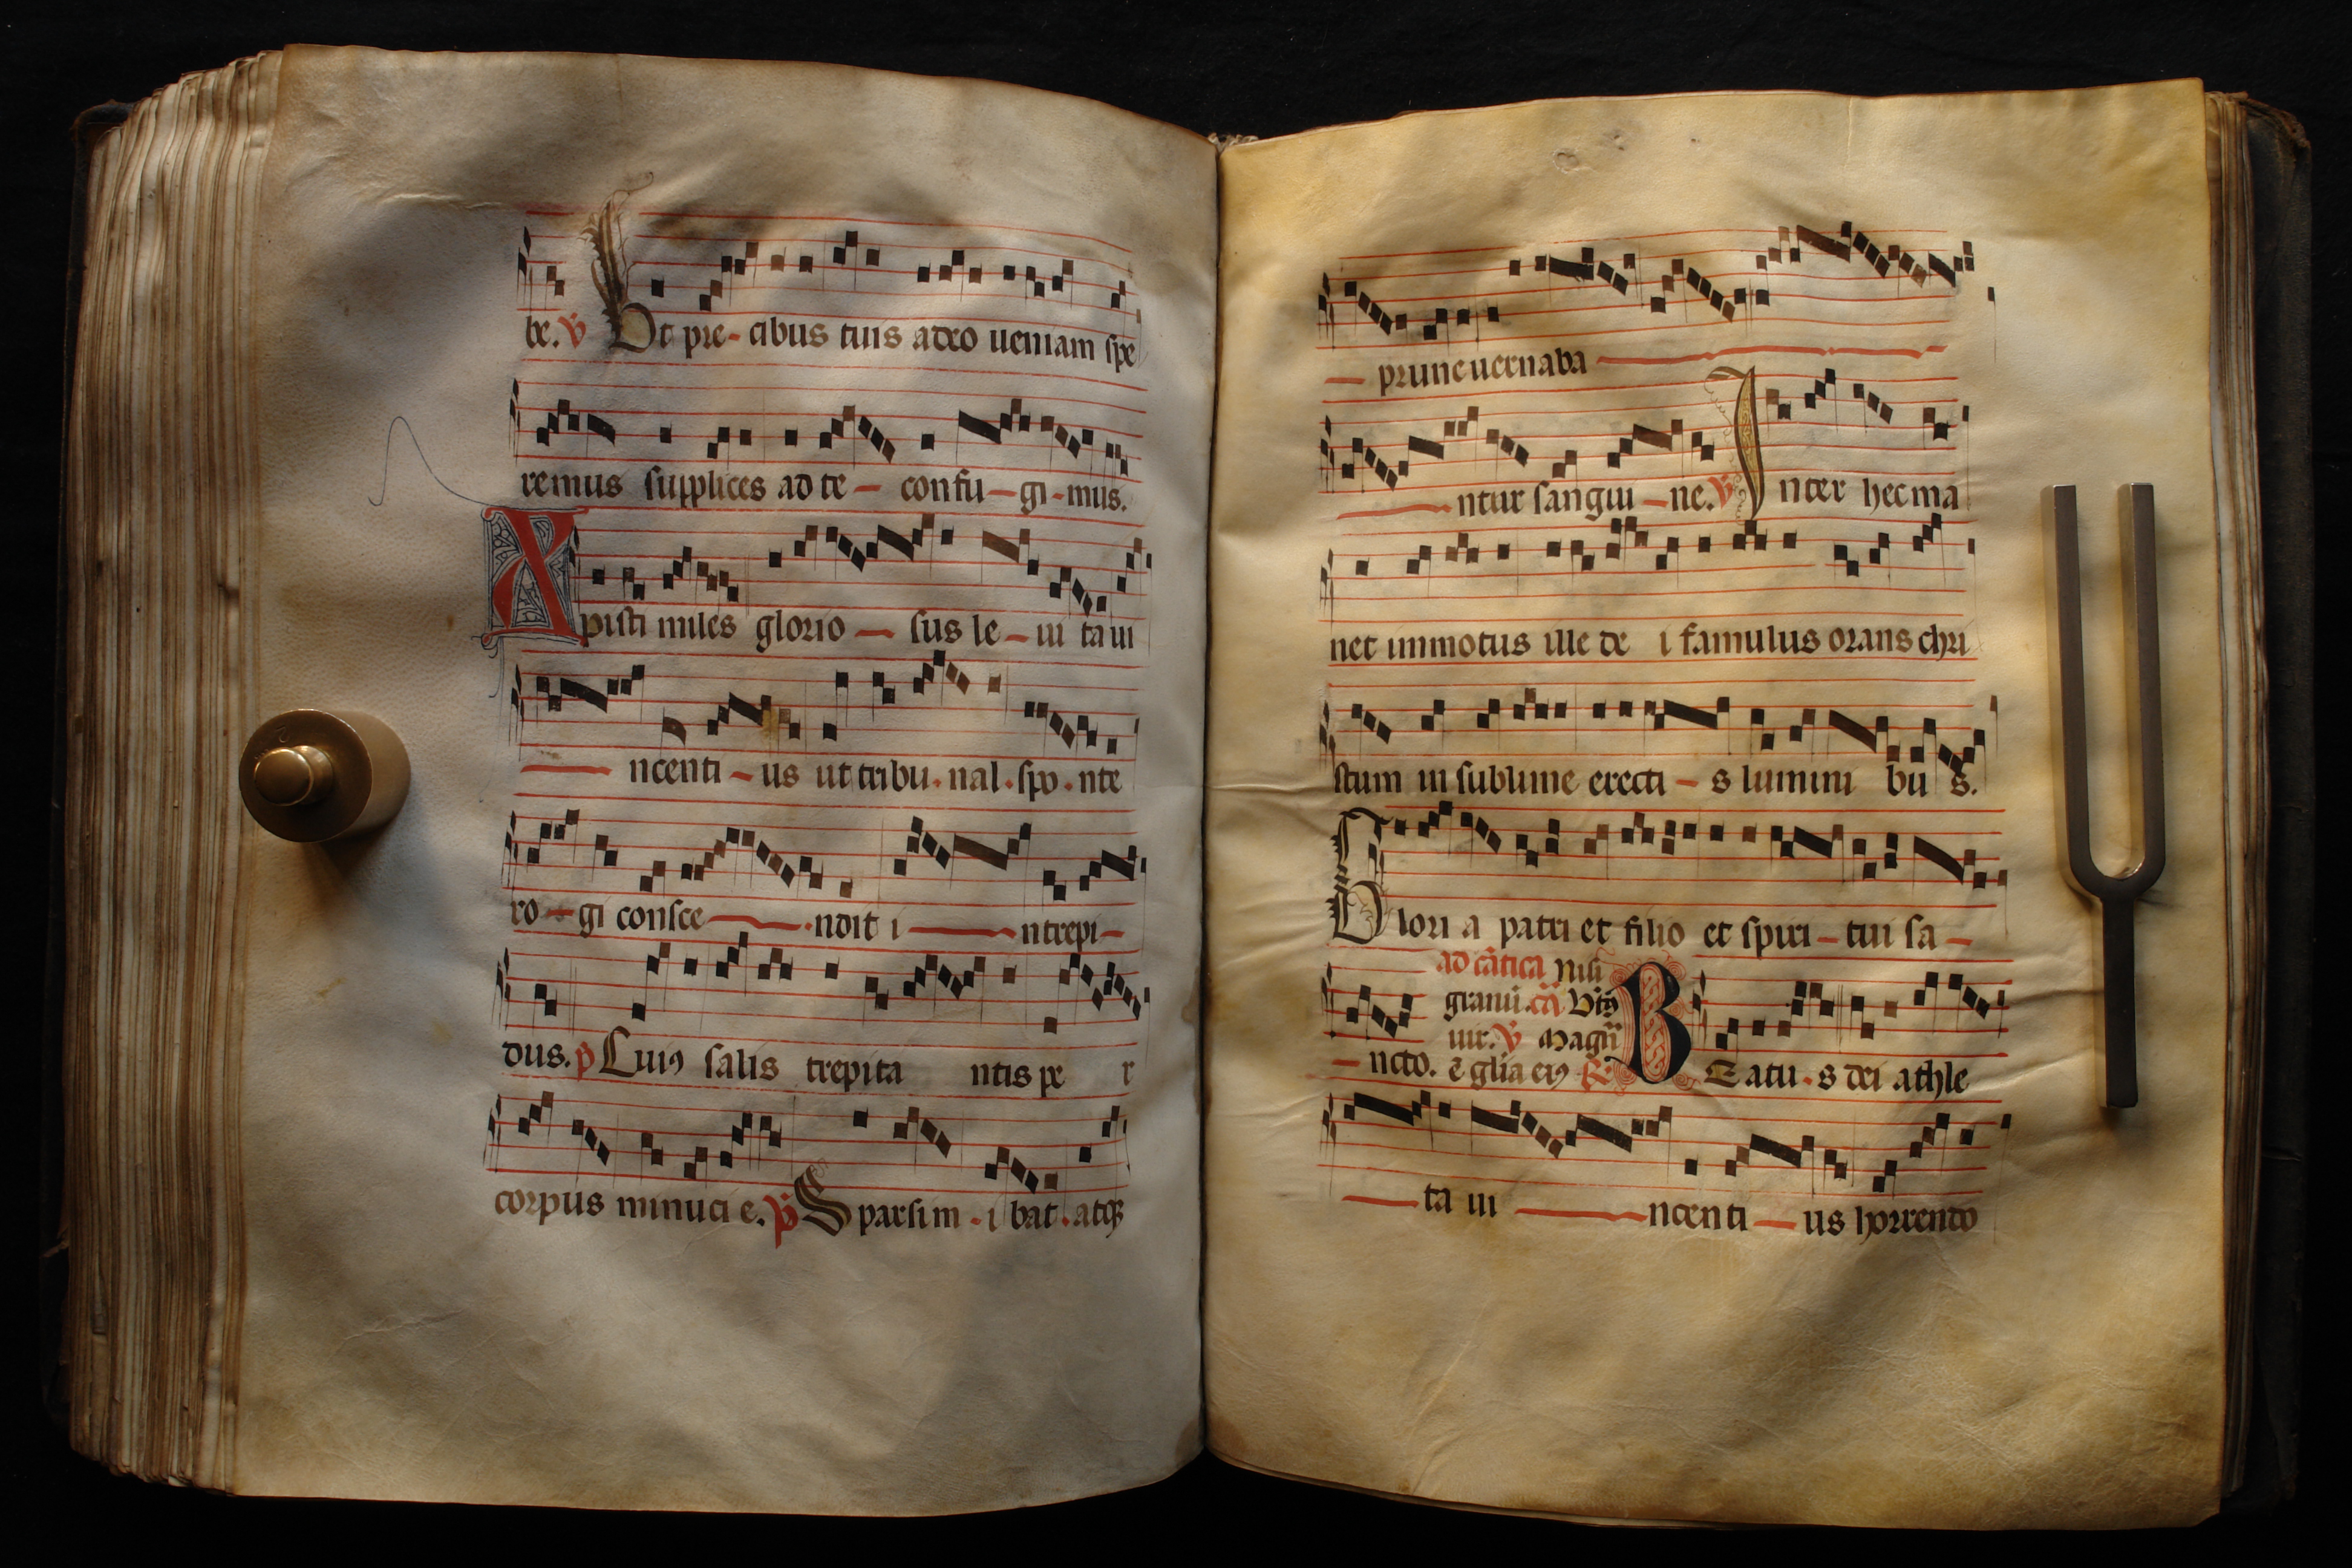 be. ℣ Vt pre-cibus tuis adeo ueniam spe
remus supplices ad te - confu-gi-mus.
Xpisti miles glorio - sus le-ui ta ui
ncenti - us ut tribu.nal.spo.nte
ro-gi consce ndit i ntrepi-
dus. Cuiꝯ salis trepita ntis pe r
corpus minuci e. Sparsim - i bat.atqꝫ
- prune uernaba
ntur sangui - ne. ℣ Inter hec ma
net immotus ille de i famulus orans chri
stum in sublime erecti - s lumini bu s.
Glori a patri et filio et spiri - tui sa -
ad cãtica Nisi
granũ. cã Btũs
uir. ℣ Magñ
- ncto. ẽ glia eiꝯ ℟ BEatu.s dei athle
ta ui ncenti - us horrendo